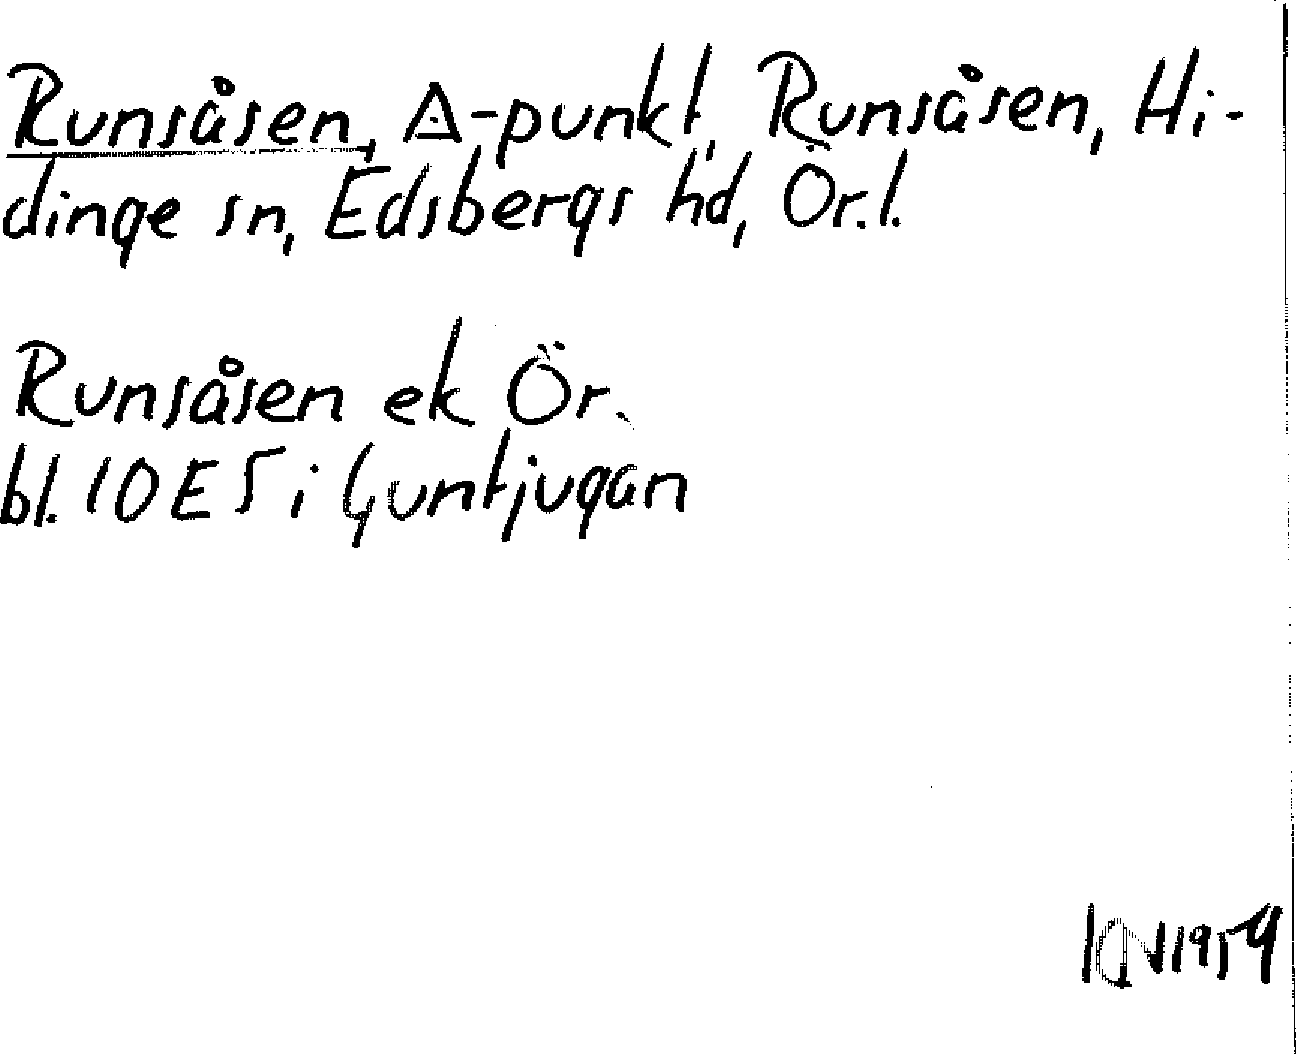 Runsåsen, △-punkt, Runsåsen, Hi-
dinge sn, Edsbergs hd, Ör.l.
Runsåsen ek Ör.
bl. 10E5 i Guntjugan
1959